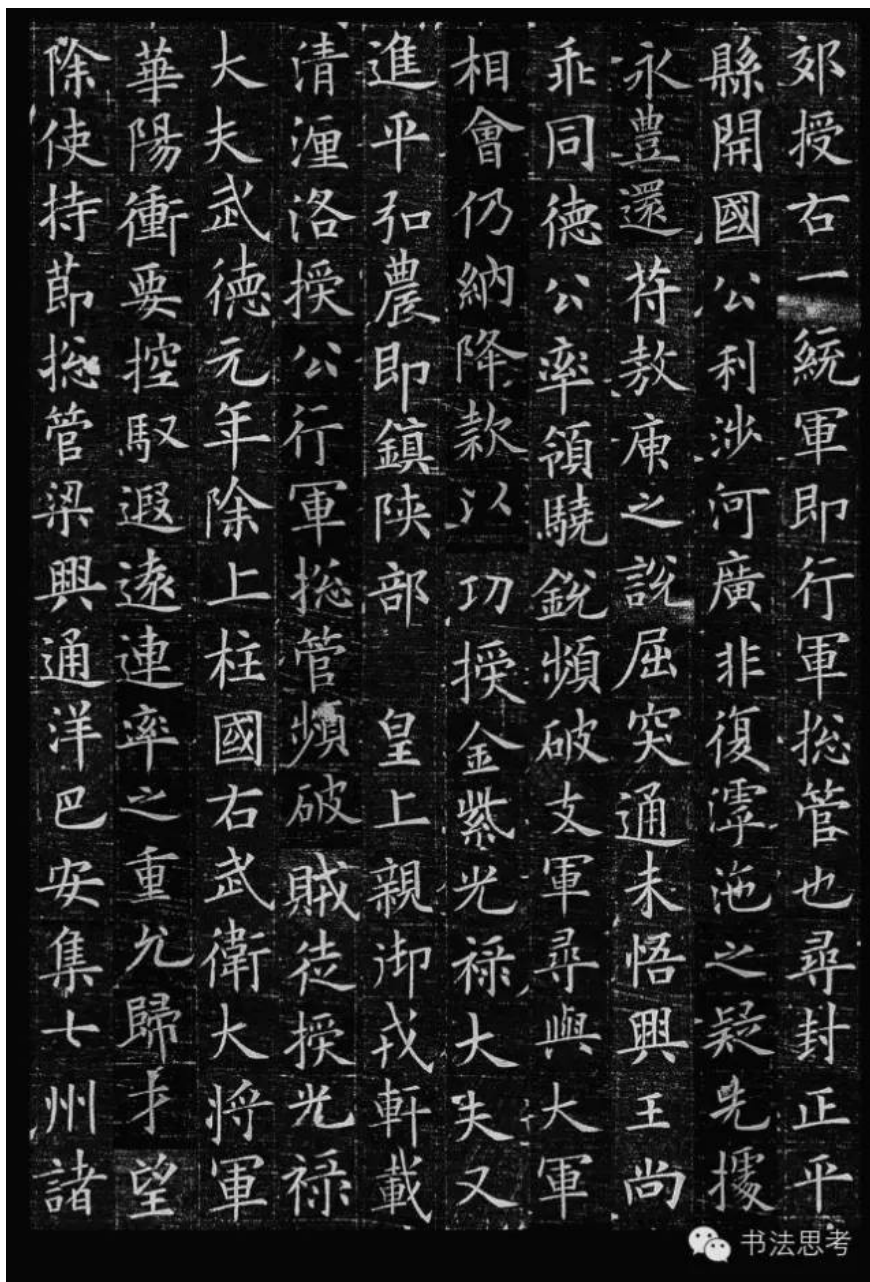 郊授右一統軍即行軍捴管也尋封正平
縣開國公利涉河廣非復滹沲之疑先據
永豊還符敖庾之說屈突通未悟興王尚
乖同德公率領驍銳頻破文軍尋與大軍
相會仍納降款以功授金紫光祿大夫又
進平弘農即鎮陝部皇上親御戎軒載
清瀍洛授公行軍捴管頻破賊徒授光祿
大夫武德元年除上柱國右武衛大將軍
華陽衝要控馭遐遠連率之重允歸才望
除使持莭捴管梁興通洋巴安集七州諸
书法思考